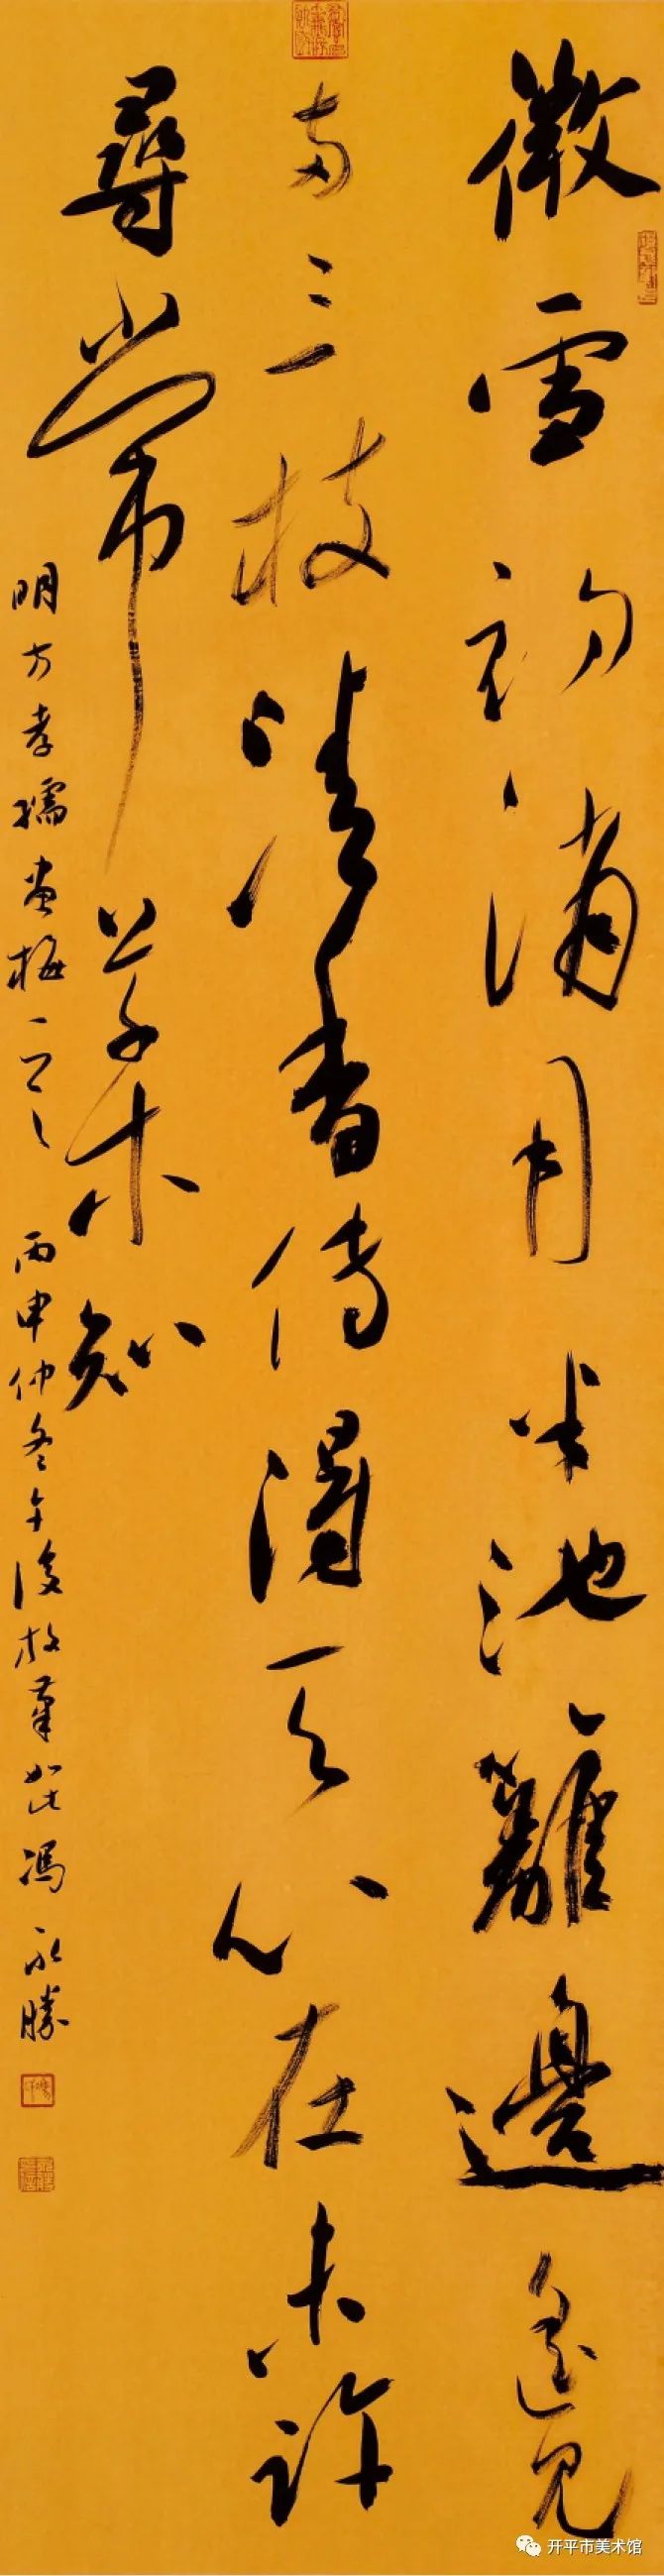 微雪初消月半池籬邊遙見
兩三枝清香傳得天心在未許
尋常草木知
明方孝孺畫梅一首 丙申仲冬午後放筆如此 馮永勝
开平市美术馆